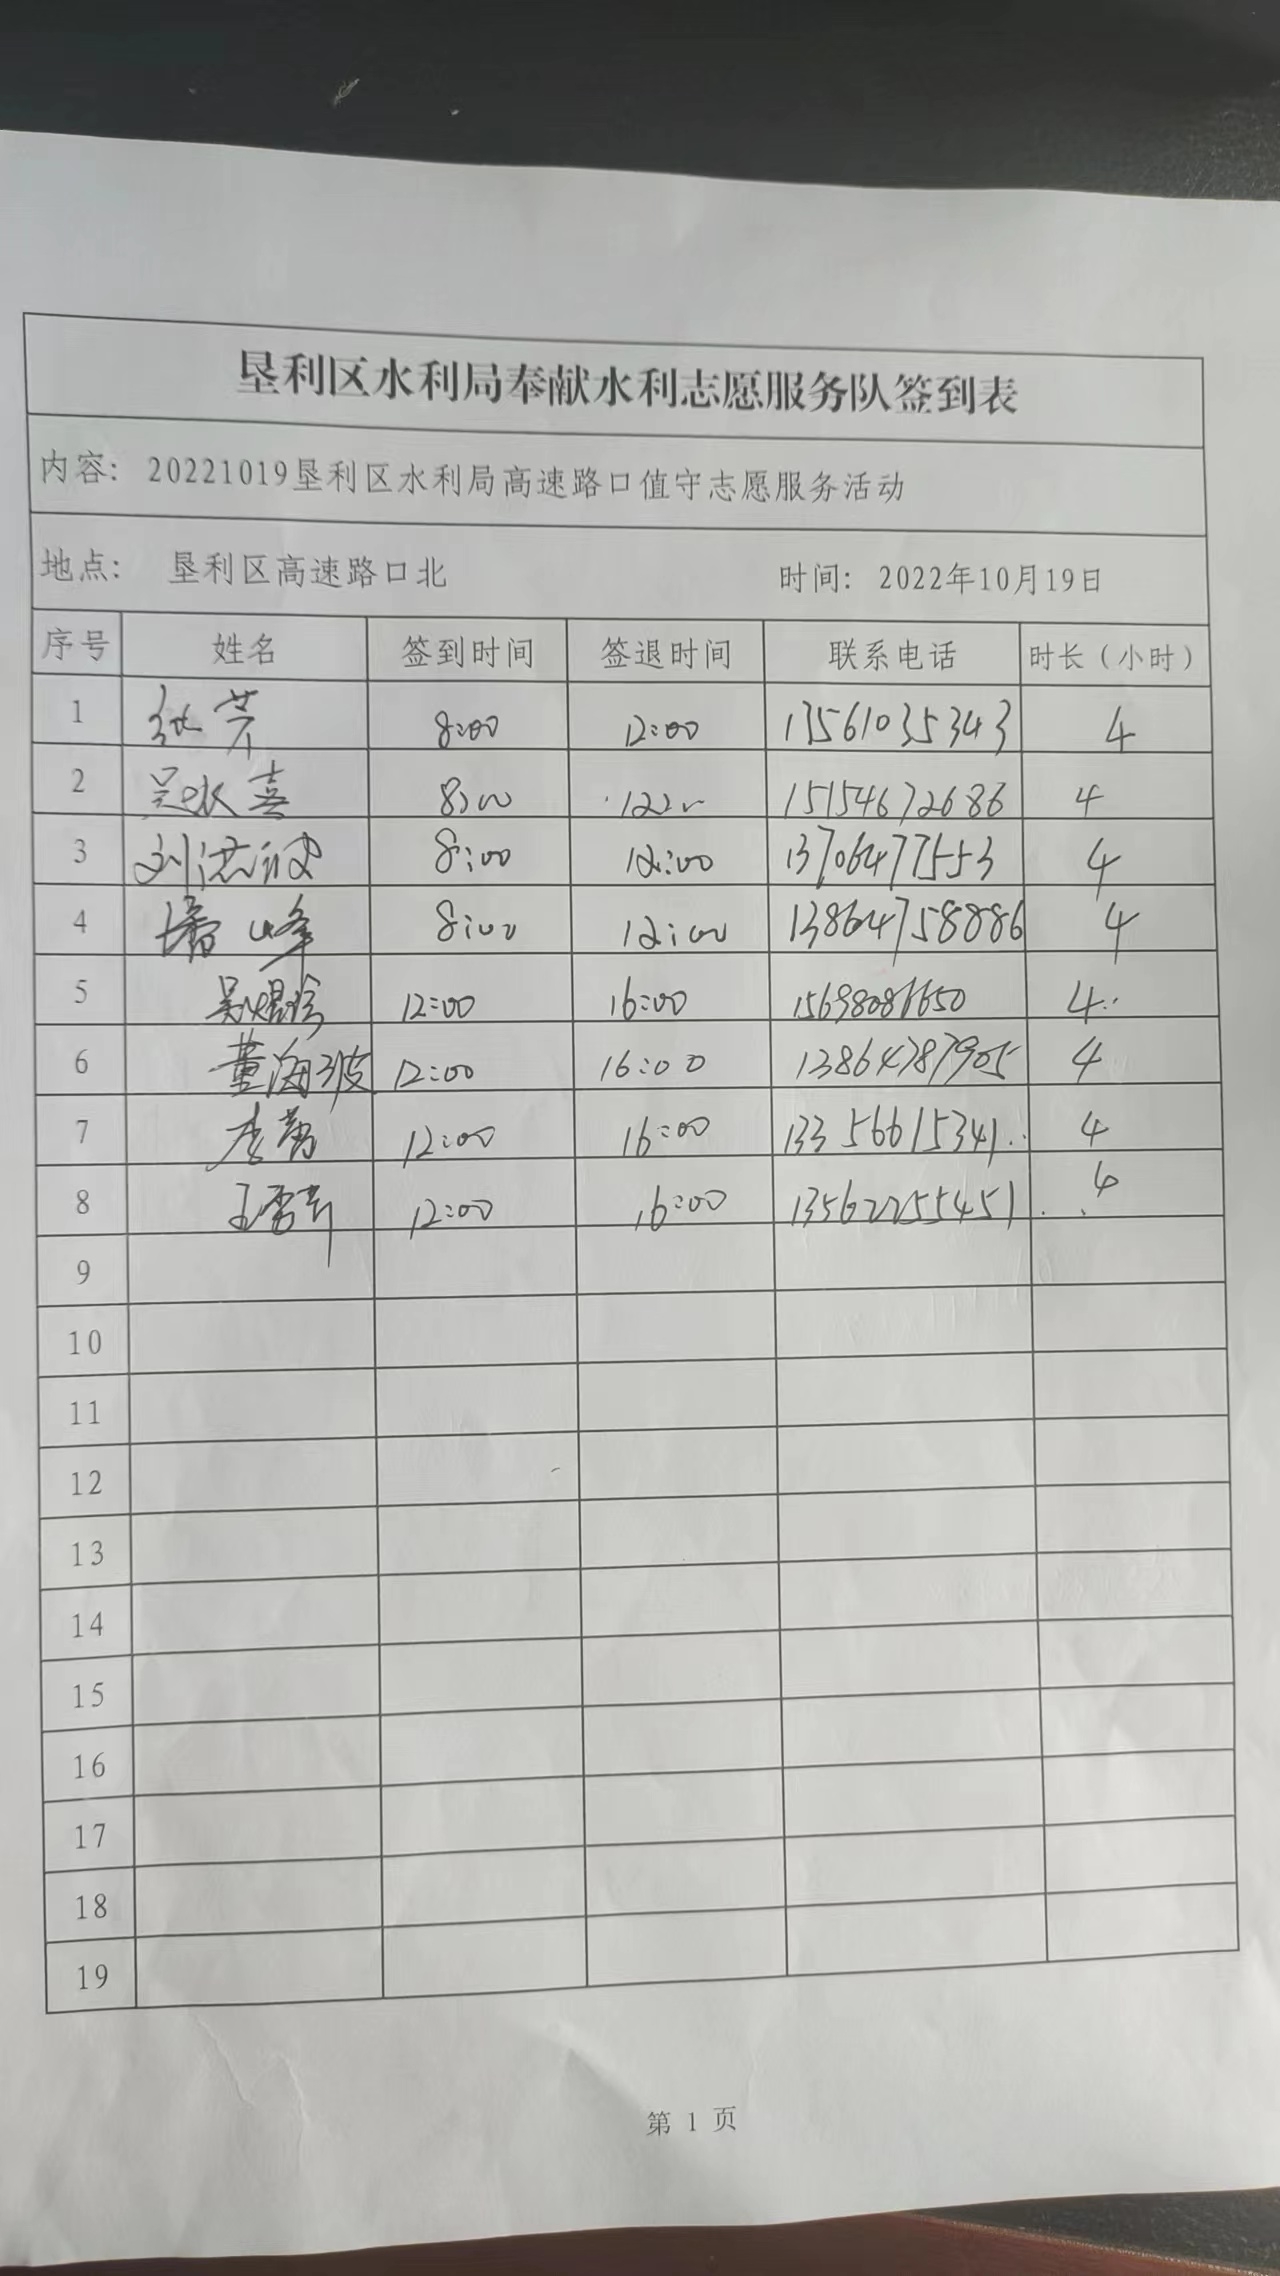 垦利区水利局奉献水利志愿服务队签到表
内容: 20221019垦利区水利局高速路口值守志愿服务活动
地点: 垦利区高速路口北 时间: 2022年10月19日
序号 姓名 签到时间 签退时间 联系电话 时长（小时）
1 张芳 8:00 12:00 13561035343 4
2 吴冰喜 8:00 15154672686 4
3 刘洪波 8:00 12:00 13706477553 4
4 潘峰 8:00 12:00 13864758886 4
5 12:00 16:00 15698086650 4
6 董海波 12:00 16:00 13864787905 4
7 李菊 12:00 16:00 13356615341 4
8 王雪 12:00 16:00 13562255451 4
9
10
11
12
13
14
15
16
17
18
19
第 1 页